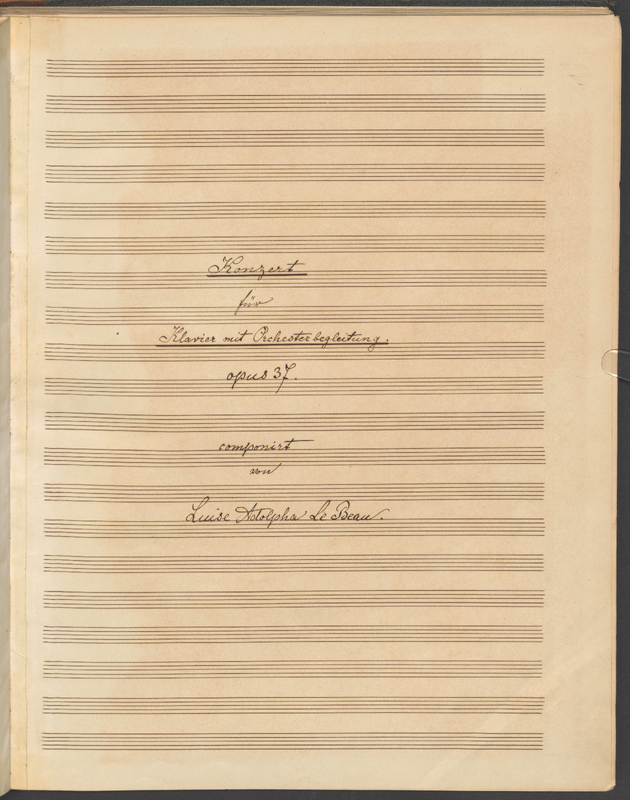 Konzert
für
Klavier mit Orchesterbegleitung.
opus 37.
componirt
von
Luise Adolpha Le Beau.